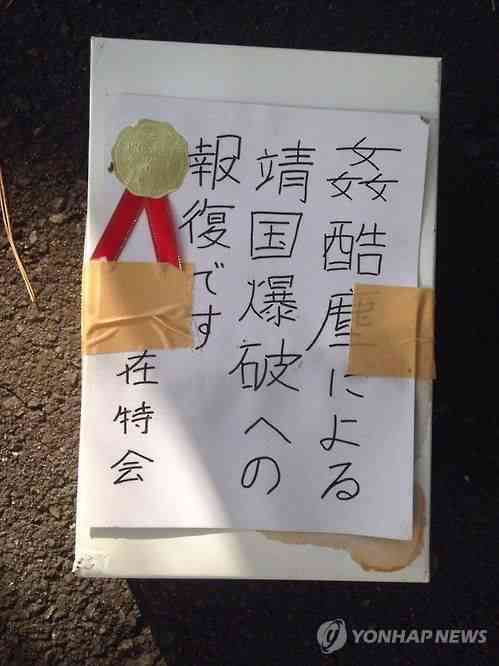 姦酷塵による
靖国爆破への
報復です
在特会
YONHAPNEWS